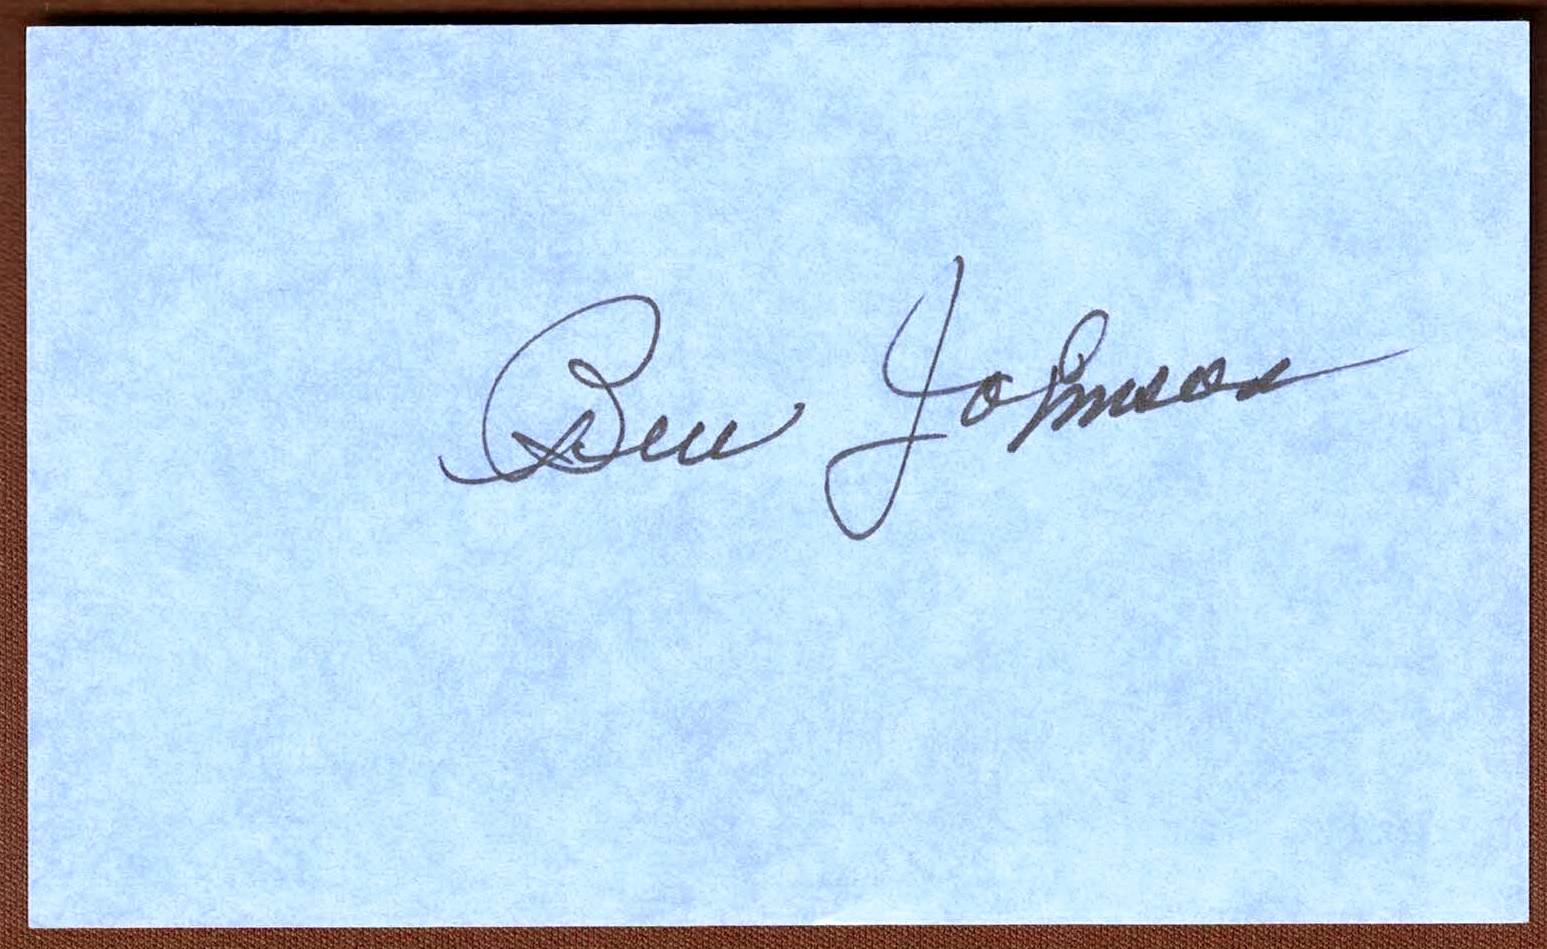 Ben Johnson